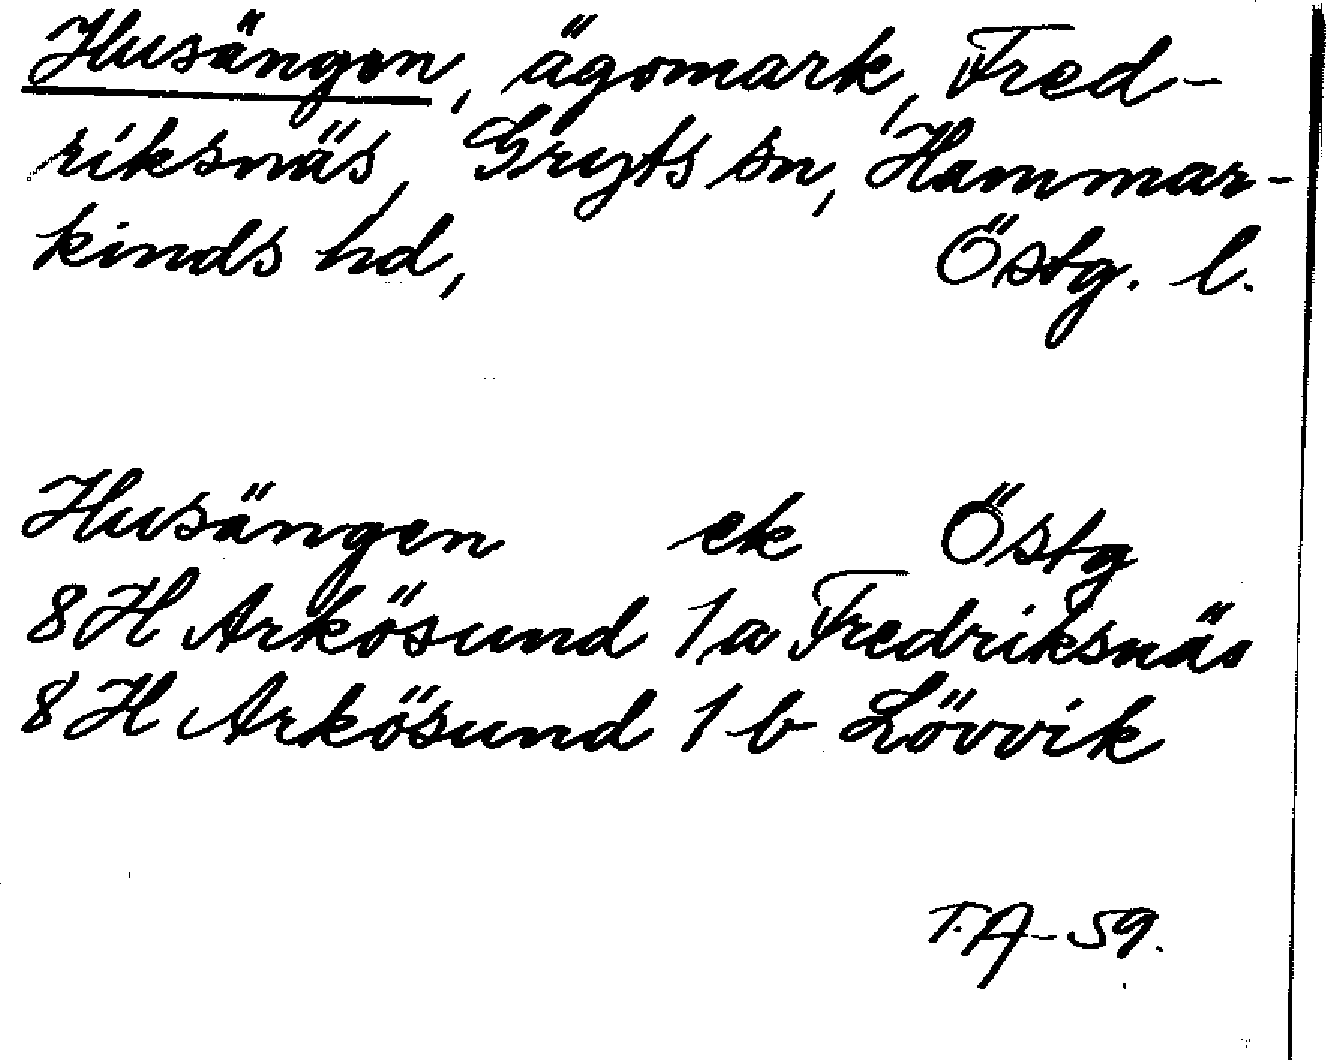 Husängen, ägomark, Fred-
riksnäs, Gryts sn, Hammar-
kinds hd, Östg. l.
Husängen ek Östg
8H Arkösund 1a Fredriksnäs
8H Arkösund 1b Lövvik
T.A-59.